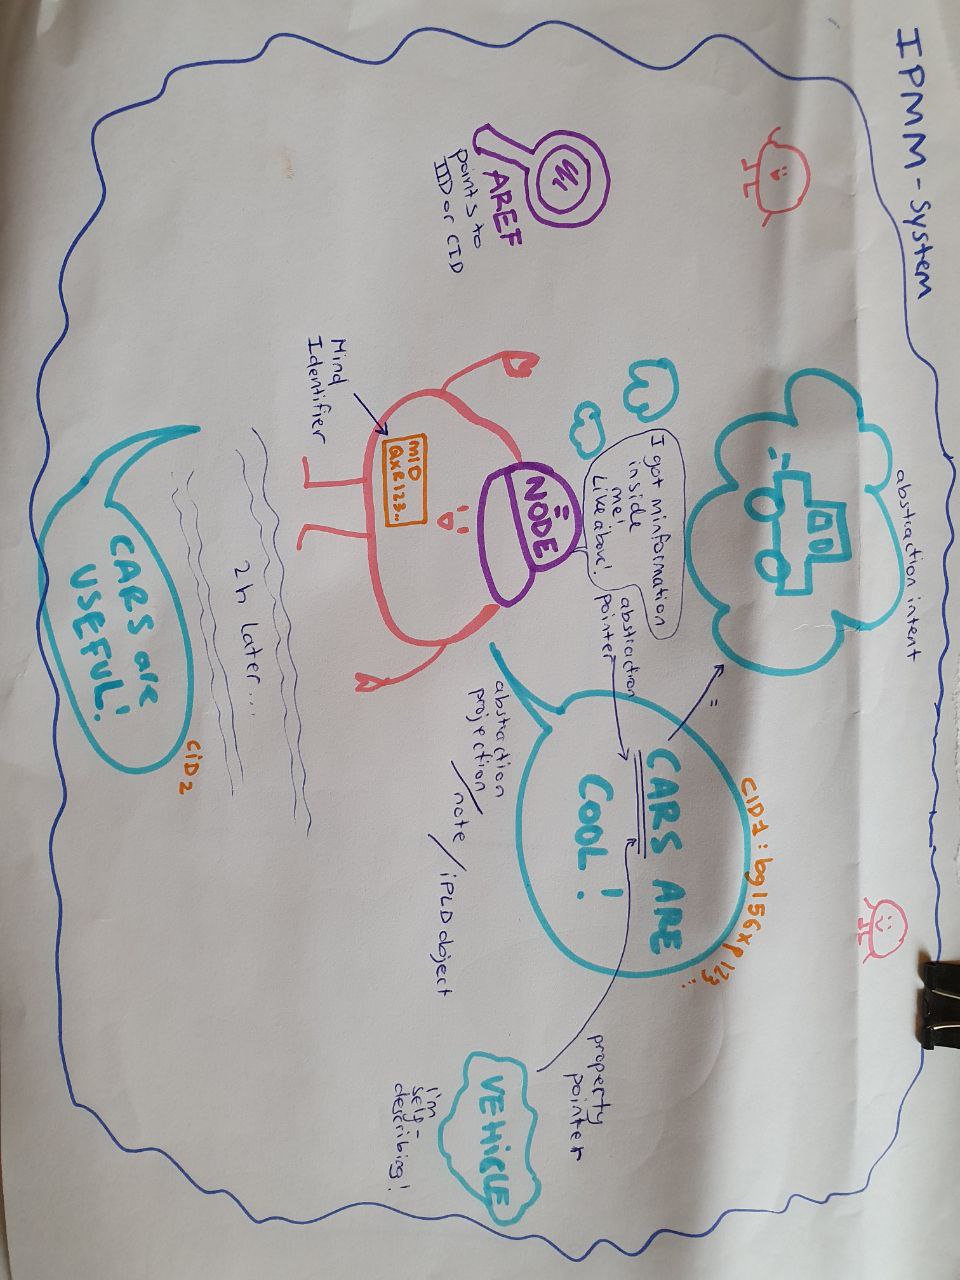 IPMM-System
abstraction intent
CID1: bg156xp123...
=
CARS ARE
COOL!
I got minformation
inside
me!
Like above!
abstraction
pointer
property
pointer
=
NODE
VEHICLE
AREF
points to
IID or CID
abstraction
projection
/note/iPLD object
I'm
self-
describing!
MID
QXR123..
Mind
Identifier
2h Later...
CiD2
CARS are
USEFUL!